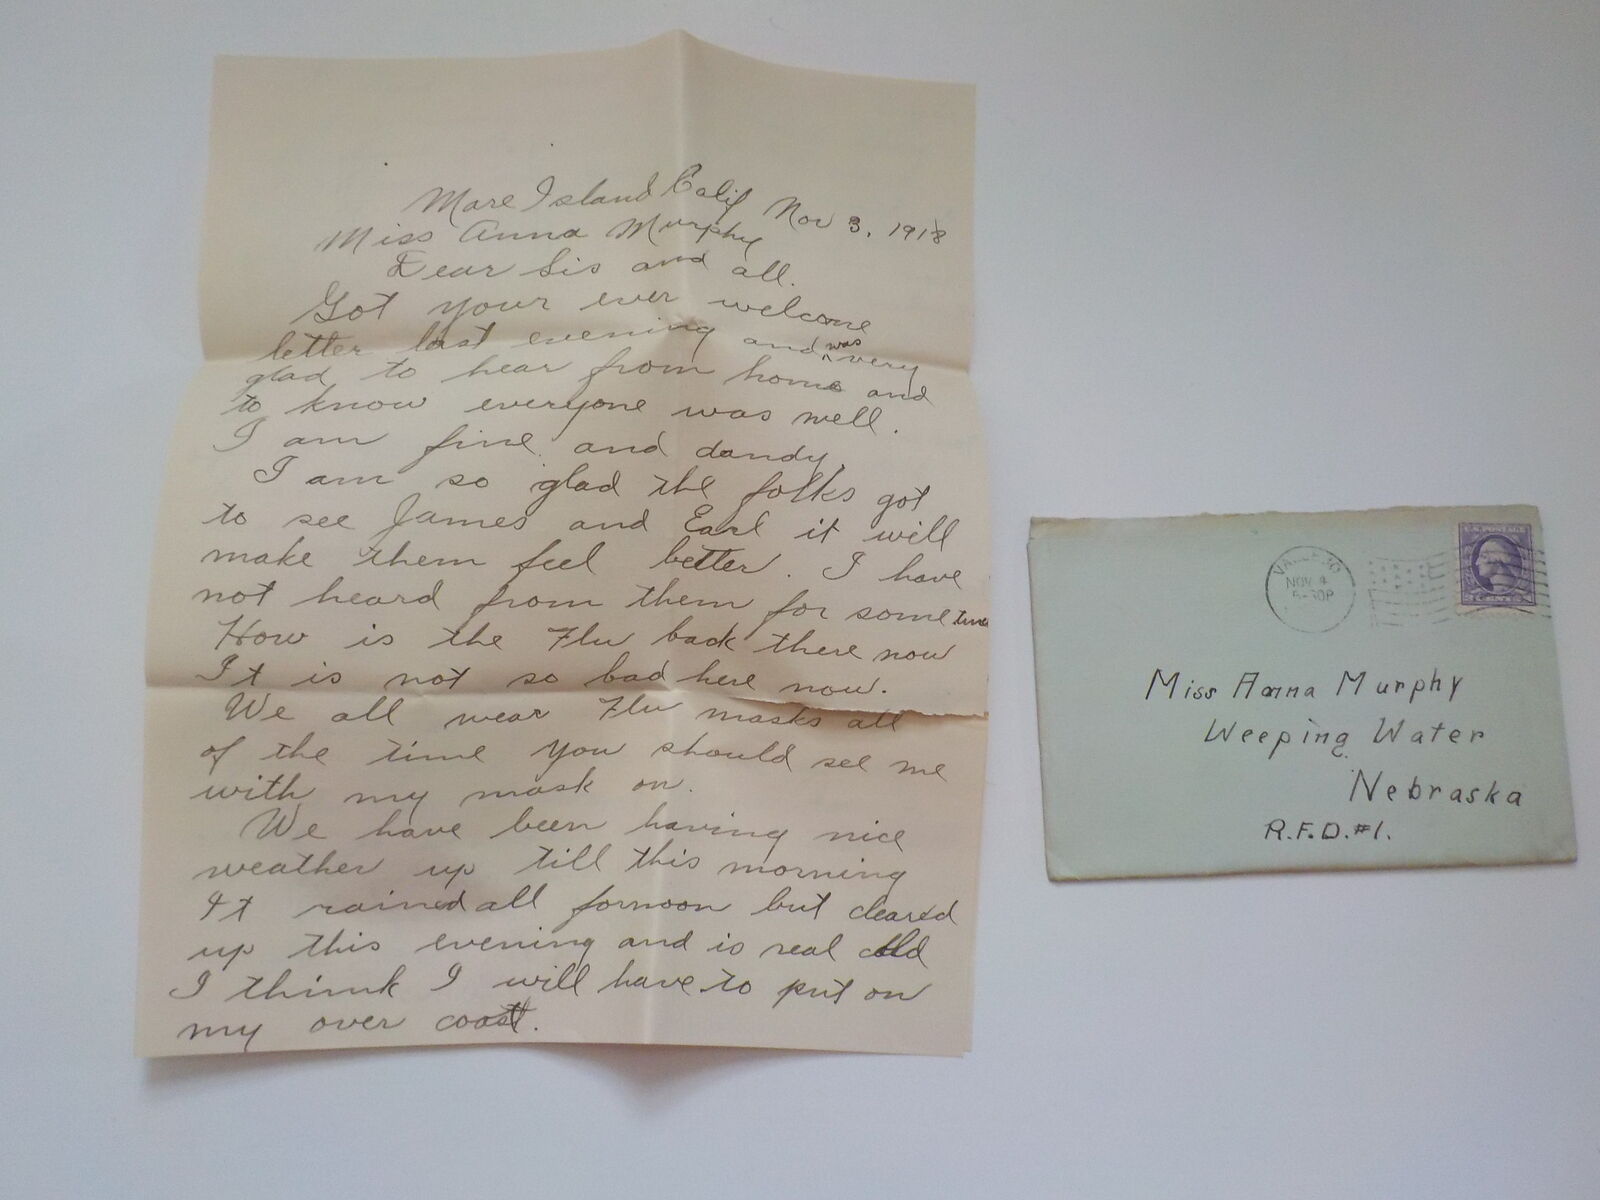 Mare Island Calif Nov 3, 1918
Miss Anna Murphy
Dear Sis and all.
Got your ever welcome
letter last evening and was very
glad to hear from home and
to know everyone was well.
I am fine and dandy.
I am so glad the folks got
to see James and Earl it will
make them feel better. I have
not heard from them for some time
How is the Flu back there now
It is not so bad here now.
We all wear Flu masks all
of the time you should see me
with my mask on.
We have been having nice
weather up till this morning
It rained all fornoon but cleared
up this evening and is real cold
I think I will have to put on
my over coat.
VALLEJO
NOV 4
5-30P
U.S. POSTAGE
Miss Anna Murphy
Weeping Water
Nebraska
R.F.D. #1.